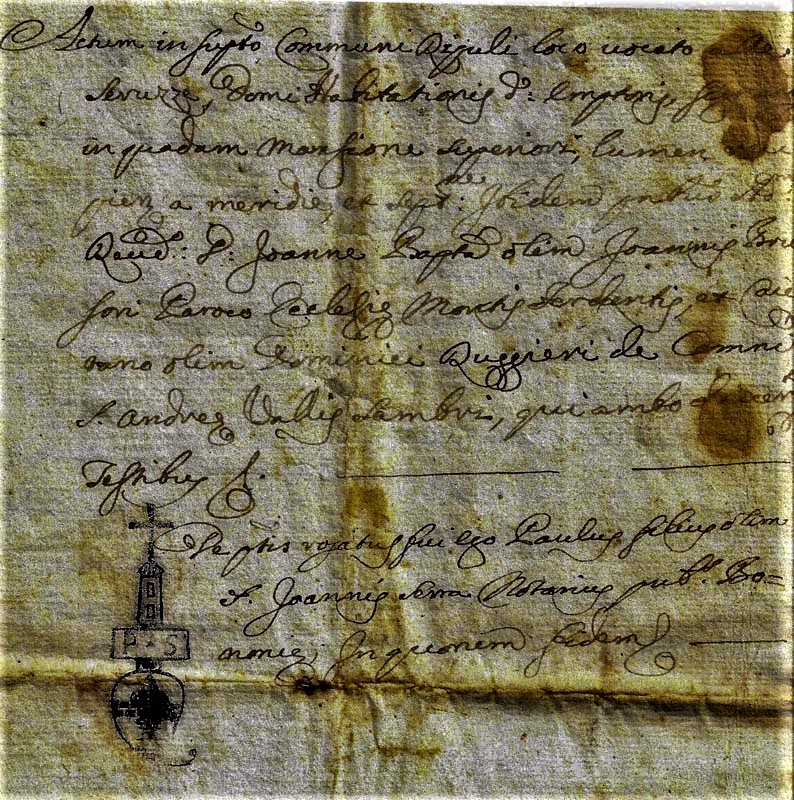 Actum in supto Communi Riguli loco vocato
Seruzze, domi Habitationis d: Emptoris,
in quadam Mansione superiori, lumen
a meridie, et sept: Ibidem
Reud: D: Joanne Bapta olim Joannis Bre
sori Paroco Ecclesie Montis Ardentis, et
olim Dominici Ruggieri de Comni
S. Andree Vallis Sambri, qui ambo
Testibus
De ptis rogatus fui ego Paulus filius olim
Joannis Serra Notarius pub: Bo=
nonie; In quorum fidem
P S